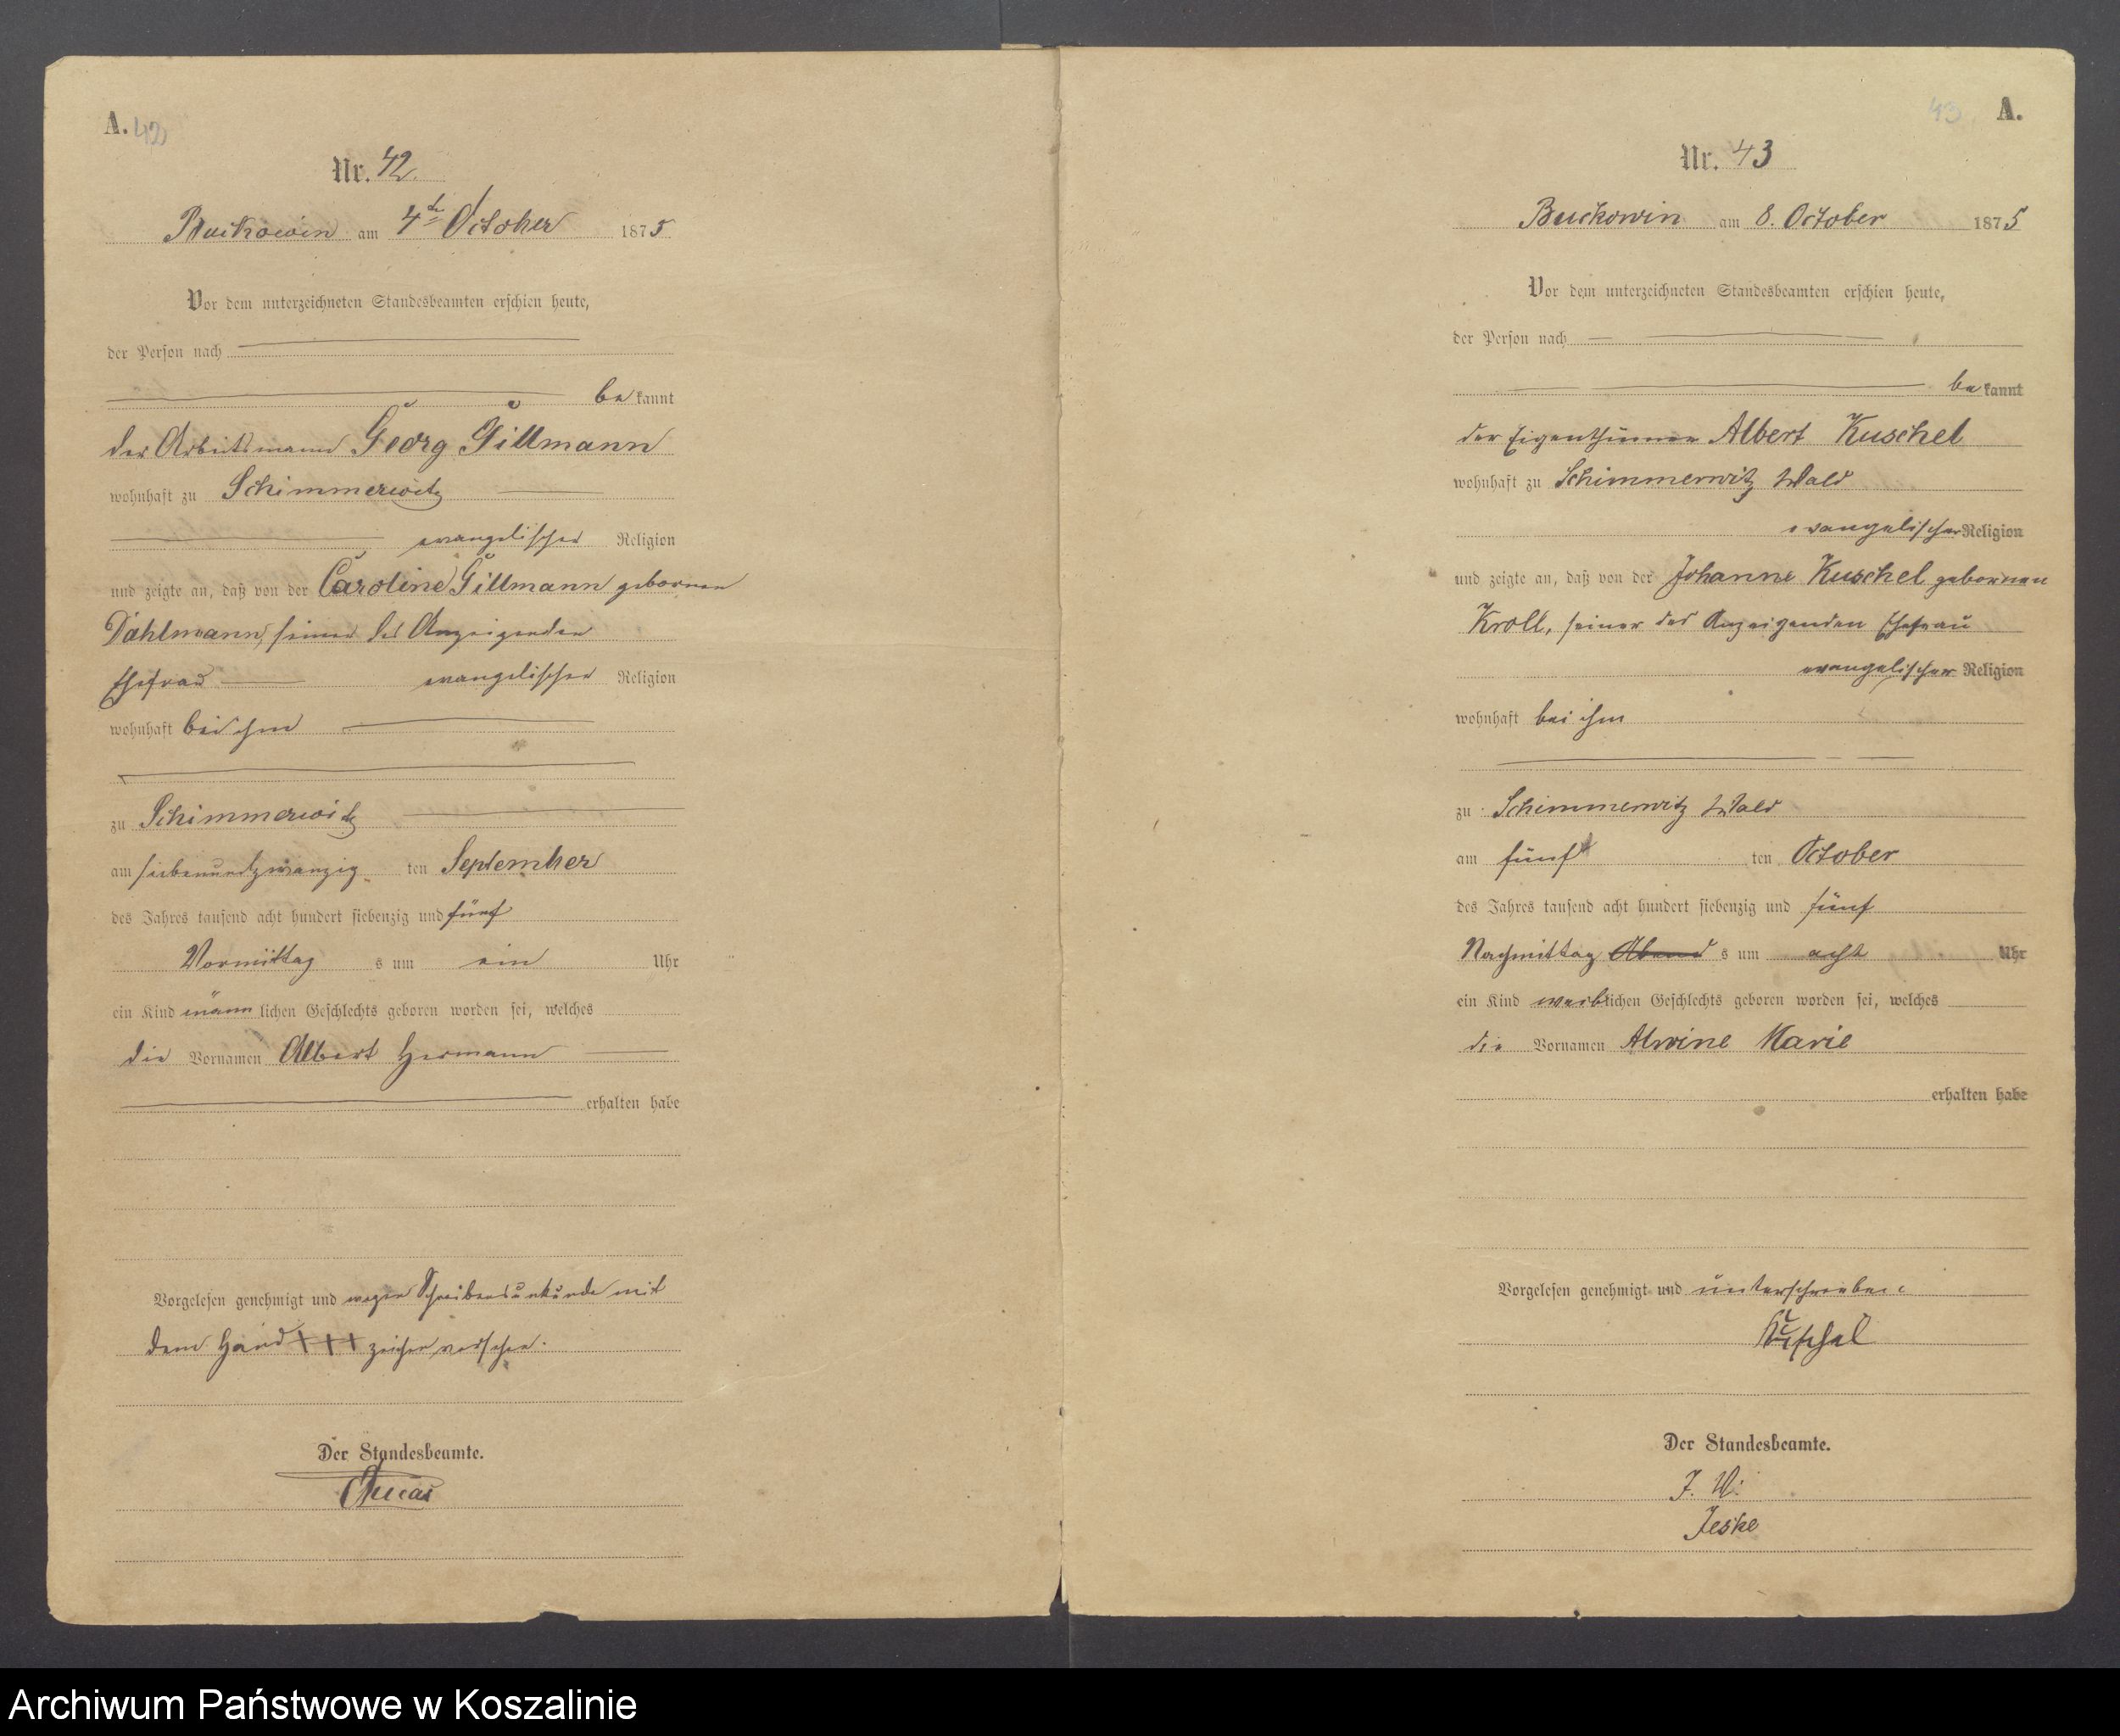 A. 42
Nr. 42.
Buckowin am 4ten October 1875
Vor dem unterzeichneten Standesbeamten erschien heute,
der Person nach
bekannt
der Arbeitsmann Georg Gillmann
wohnhaft zu Schimmerwitz
evangelischer Religion
und zeigte an, daß von der Caroline Gillmann gebornen
Dahlmann, seiner des Anzeigenden
Ehefrau evangelischer Religion
wohnhaft bei ihm
zu Schimmerwitz
am siebenundzwanzig ten September
des Jahres tausend acht hundert siebenzig und fünf
Vormittag s um ein Uhr
ein Kind männlichen Geschlechts geboren worden sei, welches
die Vornamen Albert Hermann
erhalten habe
Vorgelesen genehmigt und wegen Schreibensunkunde mit
dem Hand +++ zeichen versehen.
Der Standesbeamte.
Lucas
43 A.
Nr. 43
Buckowin am 8. October 1875
Vor dem unterzeichneten Standesbeamten erschien heute,
der Person nach
bekannt
der Eigenthümer Albert Kuschel
wohnhaft zu Schimmerwitz Wald
evangelischer Religion
und zeigte an, daß von der Johanne Kuschel gebornen
Kroll, seiner des Anzeigenden Ehefrau
evangelischer Religion
wohnhaft bei ihm
zu Schimmerwitz Wald
am fünf ten October
des Jahres tausend acht hundert siebenzig und fünf
Nachmittag Abend s um acht Uhr
ein Kind weiblichen Geschlechts geboren worden sei, welches
die Vornamen Alwine Marie
erhalten habe
Vorgelesen genehmigt und unterschrieben
Kuschel
Der Standesbeamte.
J. V.
Jeske
Archiwum Państwowe w Koszalinie